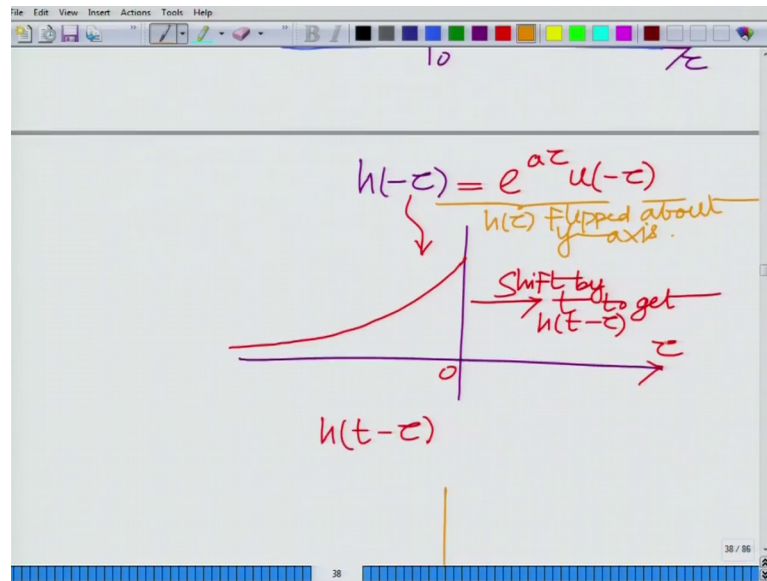 File Edit View Insert Actions Tools Help
B I
10
τ
h(-τ) = e^{aτ} u(-τ)
h(τ) flipped about
y-axis.
Shift by
t to get
h(t-τ)
τ
0
h(t-τ)
38 / 86
38